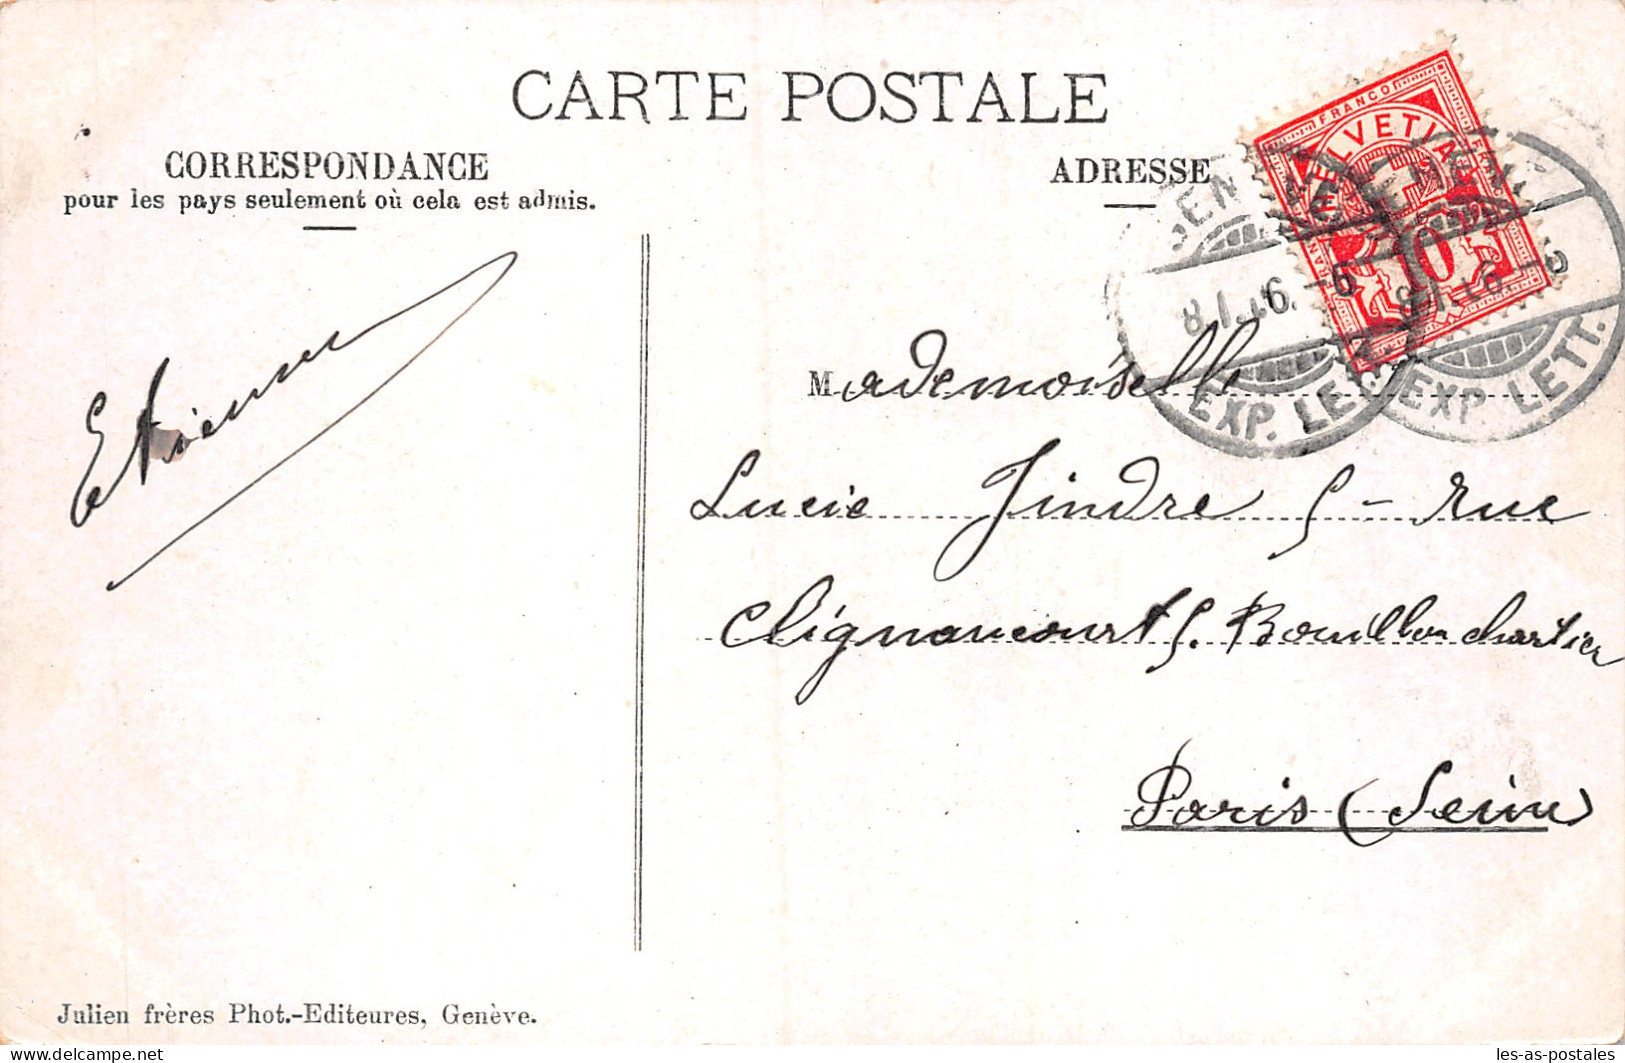 CARTE POSTALE
CORRESPONDANCE
pour les pays seulement où cela est admis.
ADRESSE
FRANCO
HELVETIA
10
EXP. LETT.
EXP. LETT.
Etienne
Mademoiselle
Lucie Jindre 5 - rue
Clignancourt 5. Bouillon chartier
Paris (Seine)
Julien frères Phot.-Editeures, Genève.
delcampe.net
les-as-postales